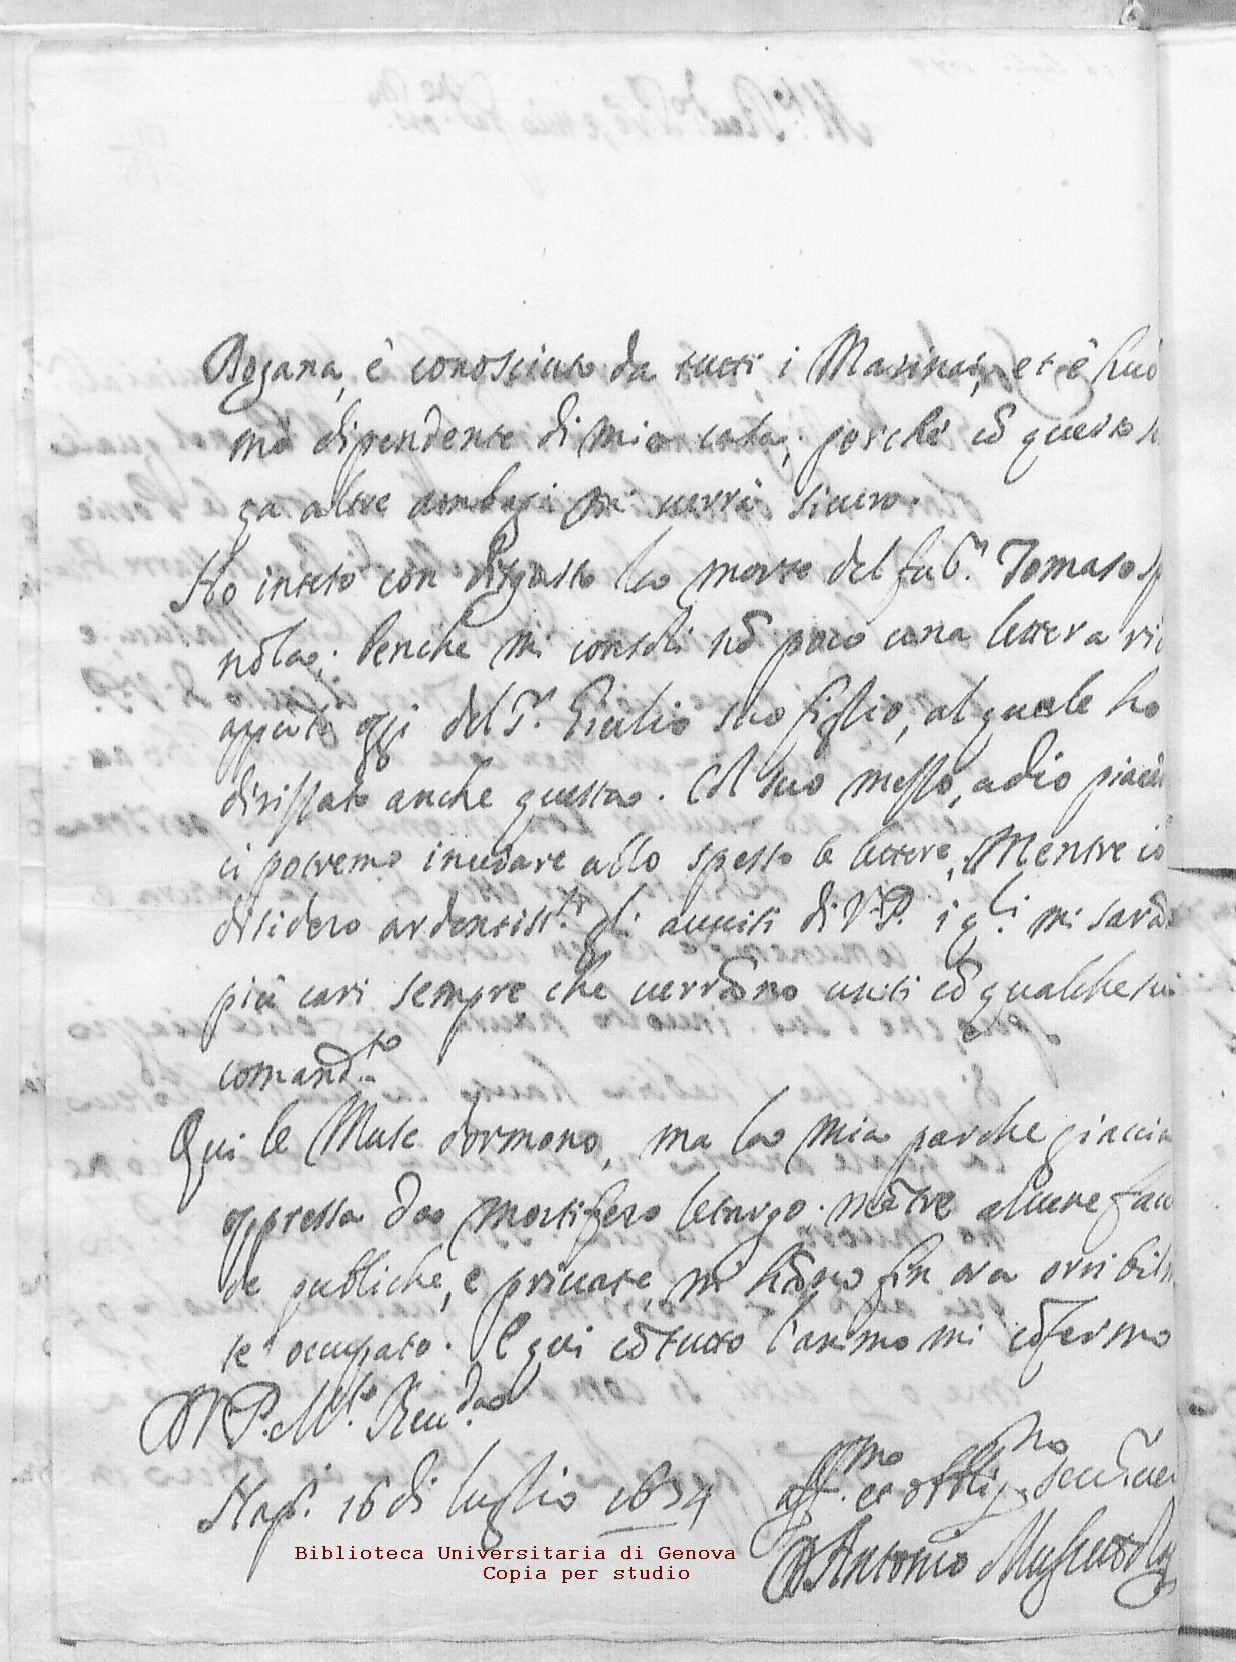 Dogana, è conosciuto da tutti i Marinari, et è huo
mo dipendente di mia casa; perche cō questo
ga altre ambagi mi verrà sicuro.
Ho inteso con disgusto la morte del fu S.r Tomaso Sp
nola; benche mi consoli nō poco una lettera ri
appūto oggi del S.r Giulio suo figlio, al quale ho
dirissato anche questa. Col suo messo, a dio piacēdo
ci potremo inviare allo spesso le lettere, Mentre io
disidero ardentiss.te gli avvisi di V.P. i q.li mi sarāno
più cari sempre che verrāno uniti cō qualche su
comand.to
Qui le Muse dormono, ma la mia par che giaccia
oppressa da mortifero letargo. mētre alcune facē
de publiche, e private, mi hāno fin ora orribilmē
te occupato. E qui cō tutto l'animo mi cōfermo
D V.P. M.to Rev.da
Nap. 16 di luglio 1654
aff.mo et oblig.mo
D. Antonio Muscettola
Biblioteca Universitaria di Genova
Copia per studio